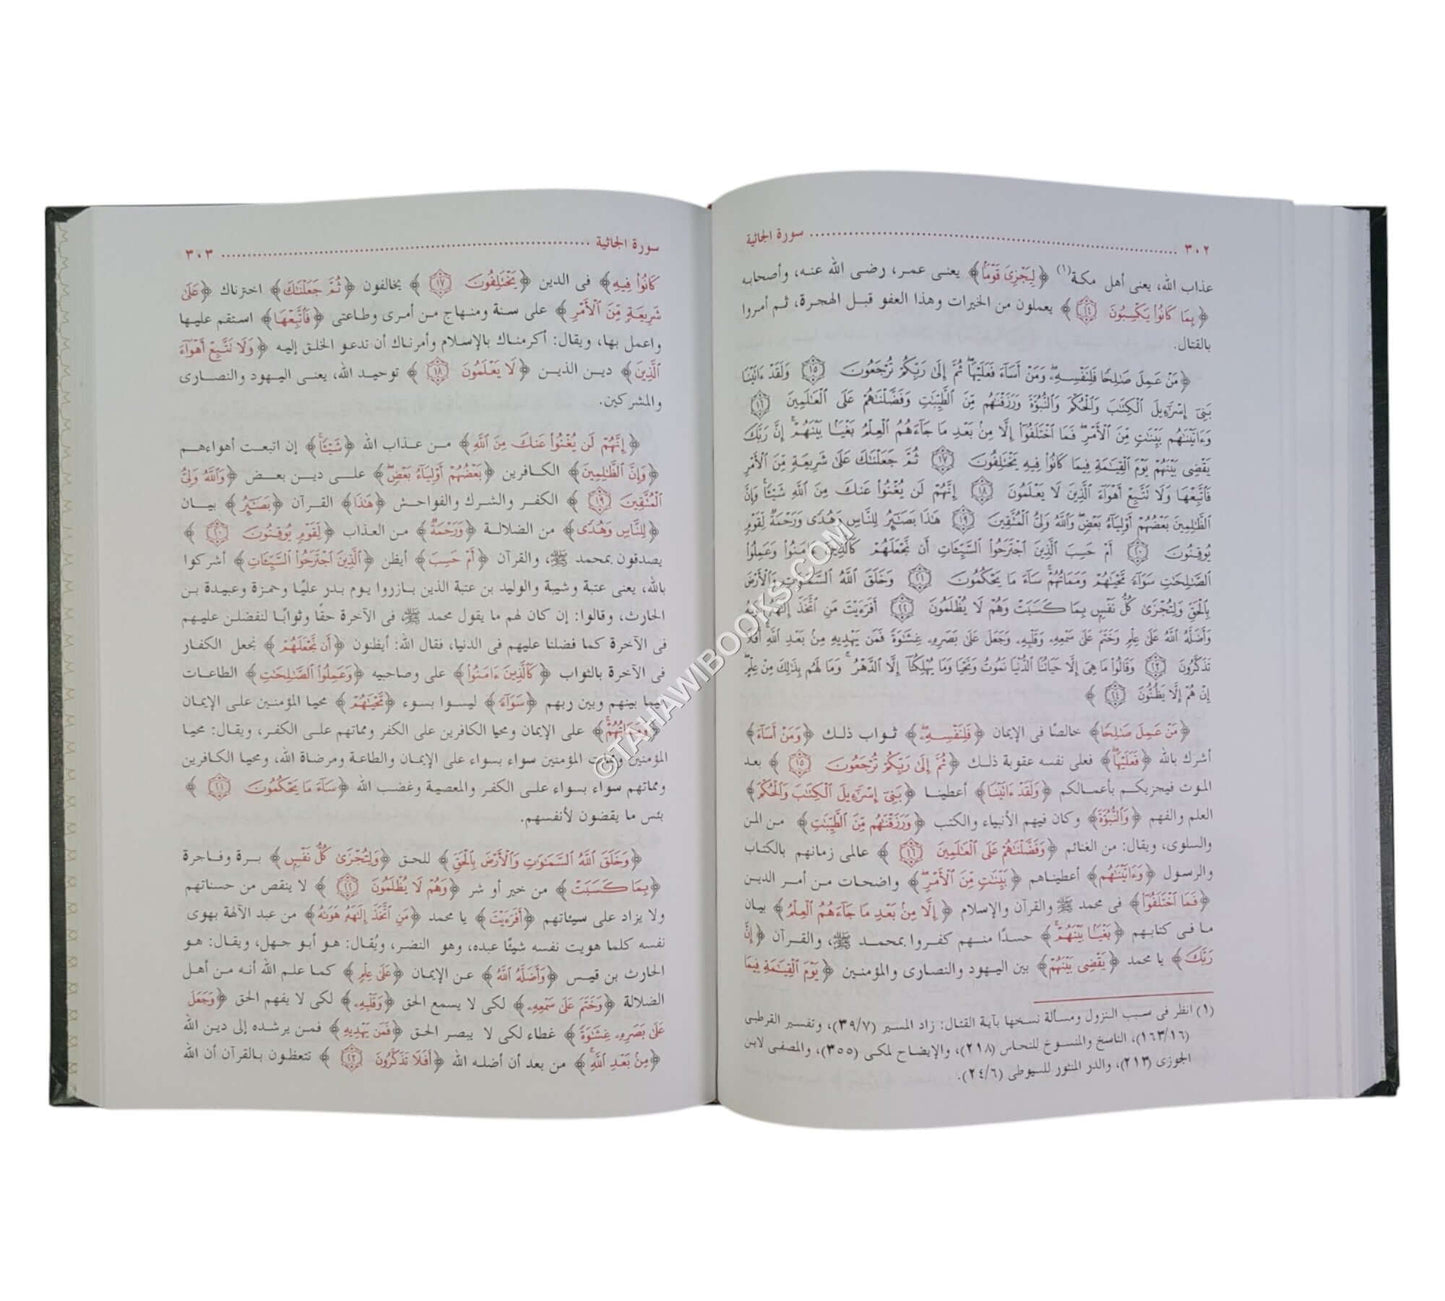 ٣٠٢ سورة الجاثية
عذاب الله، يعنى أهل مكة(١) ﴿لِيَجْزِىَ قَوْمًا﴾ يعنى عمر، رضى الله عنه، وأصحابه
﴿بِمَا كَانُوا۟ يَكْسِبُونَ ١٤﴾ يعملون من الخيرات وهذا العفو قبل الهجرة، ثم أمروا
بالقتال.
﴿مَنْ عَمِلَ صَـٰلِحًا فَلِنَفْسِهِۦ وَمَنْ أَسَآءَ فَعَلَيْهَا ثُمَّ إِلَىٰ رَبِّكُمْ تُرْجَعُونَ ١٥ وَلَقَدْ ءَاتَيْنَا
بَنِىٓ إِسْرَٰٓءِيلَ ٱلْكِتَـٰبَ وَٱلْحُكْمَ وَٱلنُّبُوَّةَ وَرَزَقْنَـٰهُم مِّنَ ٱلطَّيِّبَـٰتِ وَفَضَّلْنَـٰهُمْ عَلَى ٱلْعَـٰلَمِينَ ١٦
وَءَاتَيْنَـٰهُم بَيِّنَـٰتٍ مِّنَ ٱلْأَمْرِ فَمَا ٱخْتَلَفُوٓا۟ إِلَّا مِنۢ بَعْدِ مَا جَآءَهُمُ ٱلْعِلْمُ بَغْيًۢا بَيْنَهُمْ إِنَّ رَبَّكَ
يَقْضِى بَيْنَهُمْ يَوْمَ ٱلْقِيَـٰمَةِ فِيمَا كَانُوا۟ فِيهِ يَخْتَلِفُونَ ١٧ ثُمَّ جَعَلْنَـٰكَ عَلَىٰ شَرِيعَةٍ مِّنَ ٱلْأَمْرِ
فَٱتَّبِعْهَا وَلَا تَتَّبِعْ أَهْوَآءَ ٱلَّذِينَ لَا يَعْلَمُونَ ١٨ إِنَّهُمْ لَن يُغْنُوا۟ عَنكَ مِنَ ٱللَّهِ شَيْـًٔا وَإِنَّ
ٱلظَّـٰلِمِينَ بَعْضُهُمْ أَوْلِيَآءُ بَعْضٍ وَٱللَّهُ وَلِىُّ ٱلْمُتَّقِينَ ١٩ هَـٰذَا بَصَـٰٓئِرُ لِلنَّاسِ وَهُدًى وَرَحْمَةٌ لِّقَوْمٍ
يُوقِنُونَ ٢٠ أَمْ حَسِبَ ٱلَّذِينَ ٱجْتَرَحُوا۟ ٱلسَّيِّـَٔاتِ أَن نَّجْعَلَهُمْ كَٱلَّذِينَ ءَامَنُوا۟ وَعَمِلُوا۟
ٱلصَّـٰلِحَـٰتِ سَوَآءً مَّحْيَاهُمْ وَمَمَاتُهُمْ سَآءَ مَا يَحْكُمُونَ ٢١ وَخَلَقَ ٱللَّهُ ٱلسَّمَـٰوَٰتِ وَٱلْأَرْضَ
بِٱلْحَقِّ وَلِتُجْزَىٰ كُلُّ نَفْسٍۭ بِمَا كَسَبَتْ وَهُمْ لَا يُظْلَمُونَ ٢٢ أَفَرَءَيْتَ مَنِ ٱتَّخَذَ إِلَـٰهَهُۥ هَوَىٰهُ
وَأَضَلَّهُ ٱللَّهُ عَلَىٰ عِلْمٍ وَخَتَمَ عَلَىٰ سَمْعِهِۦ وَقَلْبِهِۦ وَجَعَلَ عَلَىٰ بَصَرِهِۦ غِشَـٰوَةً فَمَن يَهْدِيهِ مِنۢ بَعْدِ ٱللَّهِ أَفَلَا
تَذَكَّرُونَ ٢٣ وَقَالُوا۟ مَا هِىَ إِلَّا حَيَاتُنَا ٱلدُّنْيَا نَمُوتُ وَنَحْيَا وَمَا يُهْلِكُنَآ إِلَّا ٱلدَّهْرُ وَمَا لَهُم بِذَٰلِكَ مِنْ عِلْمٍ
إِنْ هُمْ إِلَّا يَظُنُّونَ ٢٤﴾
﴿مَنْ عَمِلَ صَـٰلِحًا﴾ خالصًا فى الإيمان ﴿فَلِنَفْسِهِۦ﴾ ثواب ذلك ﴿وَمَنْ أَسَآءَ﴾
أشرك بالله ﴿فَعَلَيْهَا﴾ فعلى نفسه عقوبة ذلك ﴿ثُمَّ إِلَىٰ رَبِّكُمْ تُرْجَعُونَ ١٥﴾ بعد
الموت فيجزيكم بأعمالكم ﴿وَلَقَدْ ءَاتَيْنَا﴾ أعطينا ﴿بَنِىٓ إِسْرَٰٓءِيلَ ٱلْكِتَـٰبَ وَٱلْحُكْمَ﴾
العلم والفهم ﴿وَٱلنُّبُوَّةَ﴾ وكان فيهم الأنبياء والكتب ﴿وَرَزَقْنَـٰهُم مِّنَ ٱلطَّيِّبَـٰتِ﴾ من المن
والسلوى، ويقال: من الغنائم ﴿وَفَضَّلْنَـٰهُمْ عَلَى ٱلْعَـٰلَمِينَ ١٦﴾ عالمى زمانهم بالكتاب
والرسول ﴿وَءَاتَيْنَـٰهُم﴾ أعطيناهم ﴿بَيِّنَـٰتٍ مِّنَ ٱلْأَمْرِ﴾ واضحات من أمر الدين
﴿فَمَا ٱخْتَلَفُوٓا۟﴾ فى محمد ﷺ والقرآن والإسلام ﴿إِلَّا مِنۢ بَعْدِ مَا جَآءَهُمُ ٱلْعِلْمُ﴾ بيان
ما فى كتابهم ﴿بَغْيًۢا بَيْنَهُمْ﴾ حسدًا منهم كفروا بمحمد ﷺ، والقرآن ﴿إِنَّ
رَبَّكَ﴾ يا محمد ﴿يَقْضِى بَيْنَهُمْ﴾ بين اليهود والنصارى والمؤمنين ﴿يَوْمَ ٱلْقِيَـٰمَةِ فِيمَا
(١) انظر فى سبب النزول ومسألة نسخها بآية القتال: زاد المسير (٣٩/٧)، وتفسير القرطبى
(١٦٣/١٦)، الناسخ والمنسوخ للنحاس (٢١٨)، والإيضاح لمكى (٣٥٥)، والمصفى لابن
الجوزى (٢١٣)، والدر المنثور للسيوطى (٢٤/٦).
سورة الجاثية ٣٠٣
كَانُوا۟ فِيهِ﴾ فى الدين ﴿يَخْتَلِفُونَ ١٧﴾ يخالفون ﴿ثُمَّ جَعَلْنَـٰكَ﴾ اخترناك ﴿عَلَىٰ
شَرِيعَةٍ مِّنَ ٱلْأَمْرِ﴾ على سنة ومنهاج من أمرى وطاعتى ﴿فَٱتَّبِعْهَا﴾ استقم عليها
واعمل بها، ويقال: أكرمناك بالإسلام وأمرناك أن تدعو الخلق إليه ﴿وَلَا تَتَّبِعْ أَهْوَآءَ
ٱلَّذِينَ﴾ دين الذين ﴿لَا يَعْلَمُونَ ١٨﴾ توحيد الله، يعنى اليهود والنصارى
والمشركين.
﴿إِنَّهُمْ لَن يُغْنُوا۟ عَنكَ مِنَ ٱللَّهِ﴾ من عذاب الله ﴿شَيْـًٔا﴾ إن اتبعت أهواءهم
﴿وَإِنَّ ٱلظَّـٰلِمِينَ﴾ الكافرين ﴿بَعْضُهُمْ أَوْلِيَآءُ بَعْضٍ﴾ على دين بعض ﴿وَٱللَّهُ وَلِىُّ
ٱلْمُتَّقِينَ ١٩﴾ الكفر والشرك والفواحش ﴿هَـٰذَا﴾ القرآن ﴿بَصَـٰٓئِرُ﴾ بيان
﴿لِلنَّاسِ وَهُدًى﴾ من الضلالة ﴿وَرَحْمَةٌ﴾ من العذاب ﴿لِّقَوْمٍ يُوقِنُونَ ٢٠﴾
يصدقون بمحمد ﷺ، والقرآن ﴿أَمْ حَسِبَ﴾ أيظن ﴿ٱلَّذِينَ ٱجْتَرَحُوا۟ ٱلسَّيِّـَٔاتِ﴾ أشركوا
بالله، يعنى عتبة وشيبة والوليد بن عتبة الذين بارزوا يوم بدر عليًا وحمزة وعبيدة بن
الحارث، وقالوا: إن كان لهم ما يقول محمد ﷺ فى الآخرة حقًا وثوابًا لنفضلن عليهم
فى الآخرة كما فضلنا عليهم فى الدنيا، فقال الله: أيظنون ﴿أَن نَّجْعَلَهُمْ﴾ نجعل الكفار
فى الآخرة بالثواب ﴿كَٱلَّذِينَ ءَامَنُوا۟﴾ على وصاحبيه ﴿وَعَمِلُوا۟ ٱلصَّـٰلِحَـٰتِ﴾ الطاعات
فيما بينهم وبين ربهم ﴿سَوَآءً﴾ ليسوا بسوء ﴿مَّحْيَاهُمْ﴾ محيا المؤمنين على الإيمان
﴿وَمَمَاتُهُمْ﴾ على الإيمان ومحيا الكافرين على الكفر ومماتهم على الكفر، ويقال: محيا
المؤمنين وممات المؤمنين سواء بسواء على الإيمان والطاعة ومرضاة الله، ومحيا الكافرين
ومماتهم سواء بسواء على الكفر والمعصية وغضب الله ﴿سَآءَ مَا يَحْكُمُونَ ٢١﴾
بئس ما يقضون لأنفسهم.
﴿وَخَلَقَ ٱللَّهُ ٱلسَّمَـٰوَٰتِ وَٱلْأَرْضَ بِٱلْحَقِّ﴾ للحق ﴿وَلِتُجْزَىٰ كُلُّ نَفْسٍۭ﴾ برة وفاجرة
﴿بِمَا كَسَبَتْ﴾ من خير أو شر ﴿وَهُمْ لَا يُظْلَمُونَ ٢٢﴾ لا ينقص من حسناتهم
ولا يزاد على سيئاتهم ﴿أَفَرَءَيْتَ﴾ يا محمد ﴿مَنِ ٱتَّخَذَ إِلَـٰهَهُۥ هَوَىٰهُ﴾ من عبد الآلهة بهوى
نفسه كلما هويت نفسه شيئًا عبده، وهو النضر، ويُقال: هو أبو جهل، ويقال: هو
الحارث بن قيس ﴿وَأَضَلَّهُ ٱللَّهُ﴾ عن الإيمان ﴿عَلَىٰ عِلْمٍ﴾ كما علم الله أنه من أهل
الضلالة ﴿وَخَتَمَ عَلَىٰ سَمْعِهِۦ﴾ لكى لا يسمع الحق ﴿وَقَلْبِهِۦ﴾ لكى لا يفهم الحق ﴿وَجَعَلَ
عَلَىٰ بَصَرِهِۦ غِشَـٰوَةً﴾ غطاء لكى لا يبصر الحق ﴿فَمَن يَهْدِيهِ﴾ فمن يرشده إلى دين الله
﴿مِنۢ بَعْدِ ٱللَّهِ﴾ من بعد أن أضله الله ﴿أَفَلَا تَذَكَّرُونَ ٢٣﴾ تتعظون بالقرآن أن الله
©TAHAWIBOOKS.COM